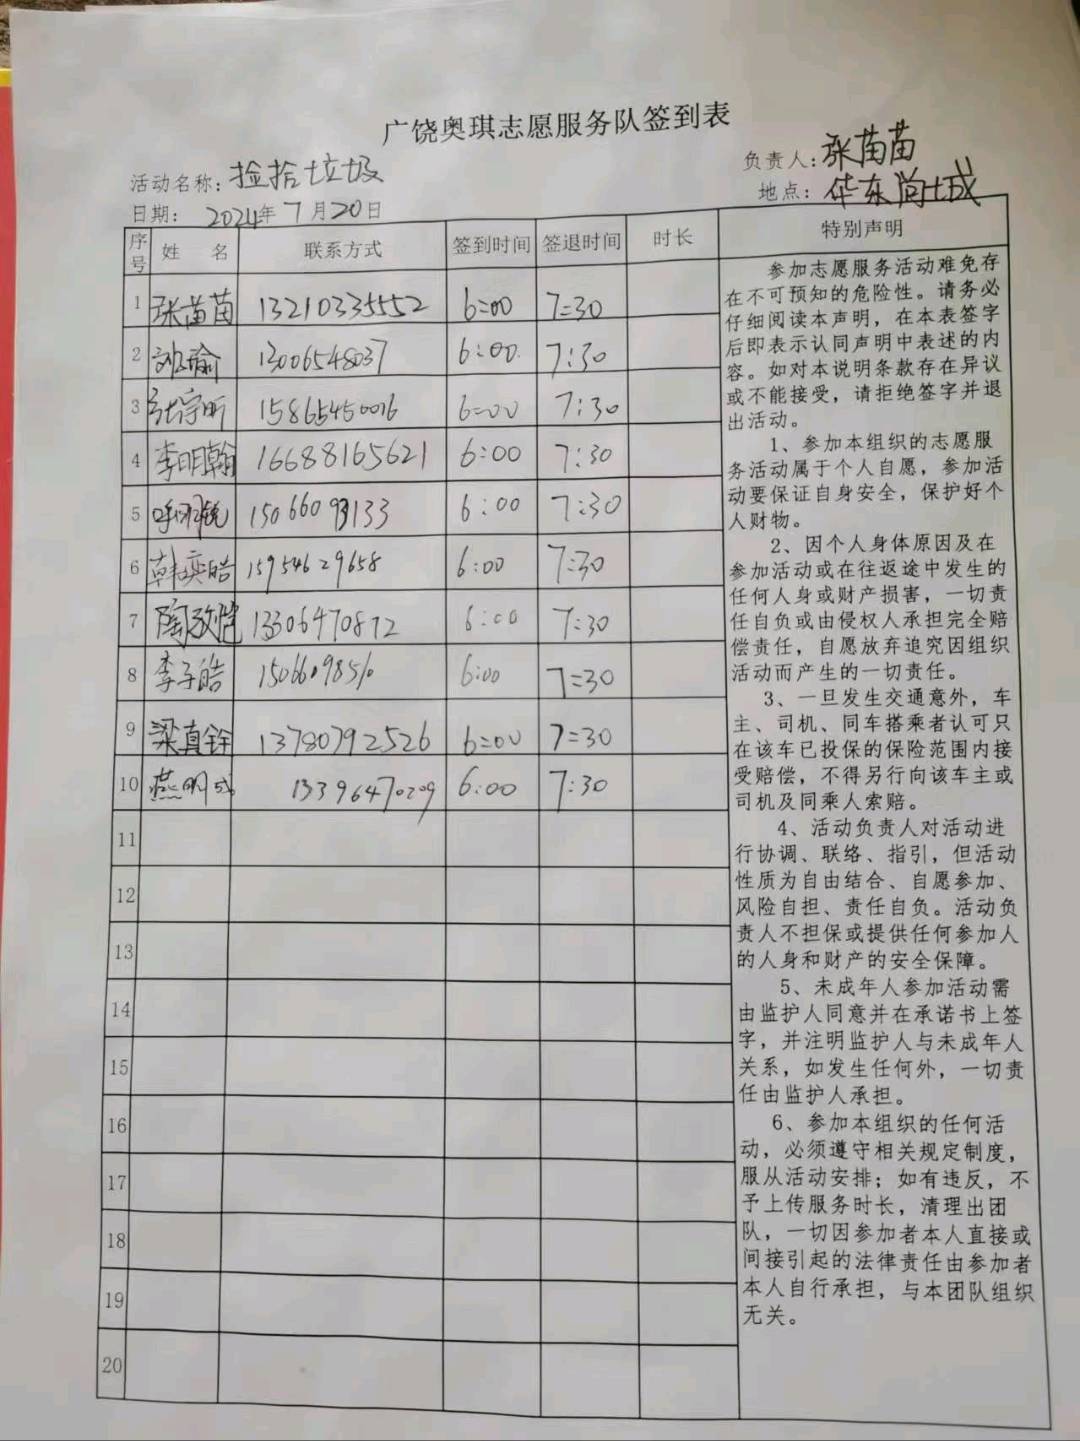 广饶奥琪志愿服务队签到表
活动名称：捡拾垃圾
负责人：张苗苗
日期： 2024年 7月20日
地点： 华东尚城
序号 姓 名 联系方式 签到时间 签退时间 时长 特别声明
1 张苗苗 13210335552 6:00 7:30
2 瑜 13006548037 6:00 7:30
3 15865450016 6:00 7:30
4 李明翰 16688165621 6:00 7:30
5 6:00 7:30
6 韩奕皓 15954629658 6:00 7:30
7 陶 13306470872 6:00 7:30
8 李子皓 6:00 7:30
9 梁真铨 13780792526 6:00 7:30
10 燕明成 13396470209 6:00 7:30
11
12
13
14
15
16
17
18
19
20
参加志愿服务活动难免存
在不可预知的危险性。请务必
仔细阅读本声明，在本表签字
后即表示认同声明中表述的内
容。如对本说明条款存在异议
或不能接受，请拒绝签字并退
出活动。
1、参加本组织的志愿服
务活动属于个人自愿，参加活
动要保证自身安全，保护好个
人财物。
2、因个人身体原因及在
参加活动或在往返途中发生的
任何人身或财产损害，一切责
任自负或由侵权人承担完全赔
偿责任，自愿放弃追究因组织
活动而产生的一切责任。
3、一旦发生交通意外，车
主、司机、同车搭乘者认可只
在该车已投保的保险范围内接
受赔偿，不得另行向该车主或
司机及同乘人索赔。
4、活动负责人对活动进
行协调、联络、指引，但活动
性质为自由结合、自愿参加、
风险自担、责任自负。活动负
责人不担保或提供任何参加人
的人身和财产的安全保障。
5、未成年人参加活动需
由监护人同意并在承诺书上签
字，并注明监护人与未成年人
关系，如发生任何外，一切责
任由监护人承担。
6、参加本组织的任何活
动，必须遵守相关规定制度，
服从活动安排；如有违反，不
予上传服务时长，清理出团
队，一切因参加者本人直接或
间接引起的法律责任由参加者
本人自行承担，与本团队组织
无关。